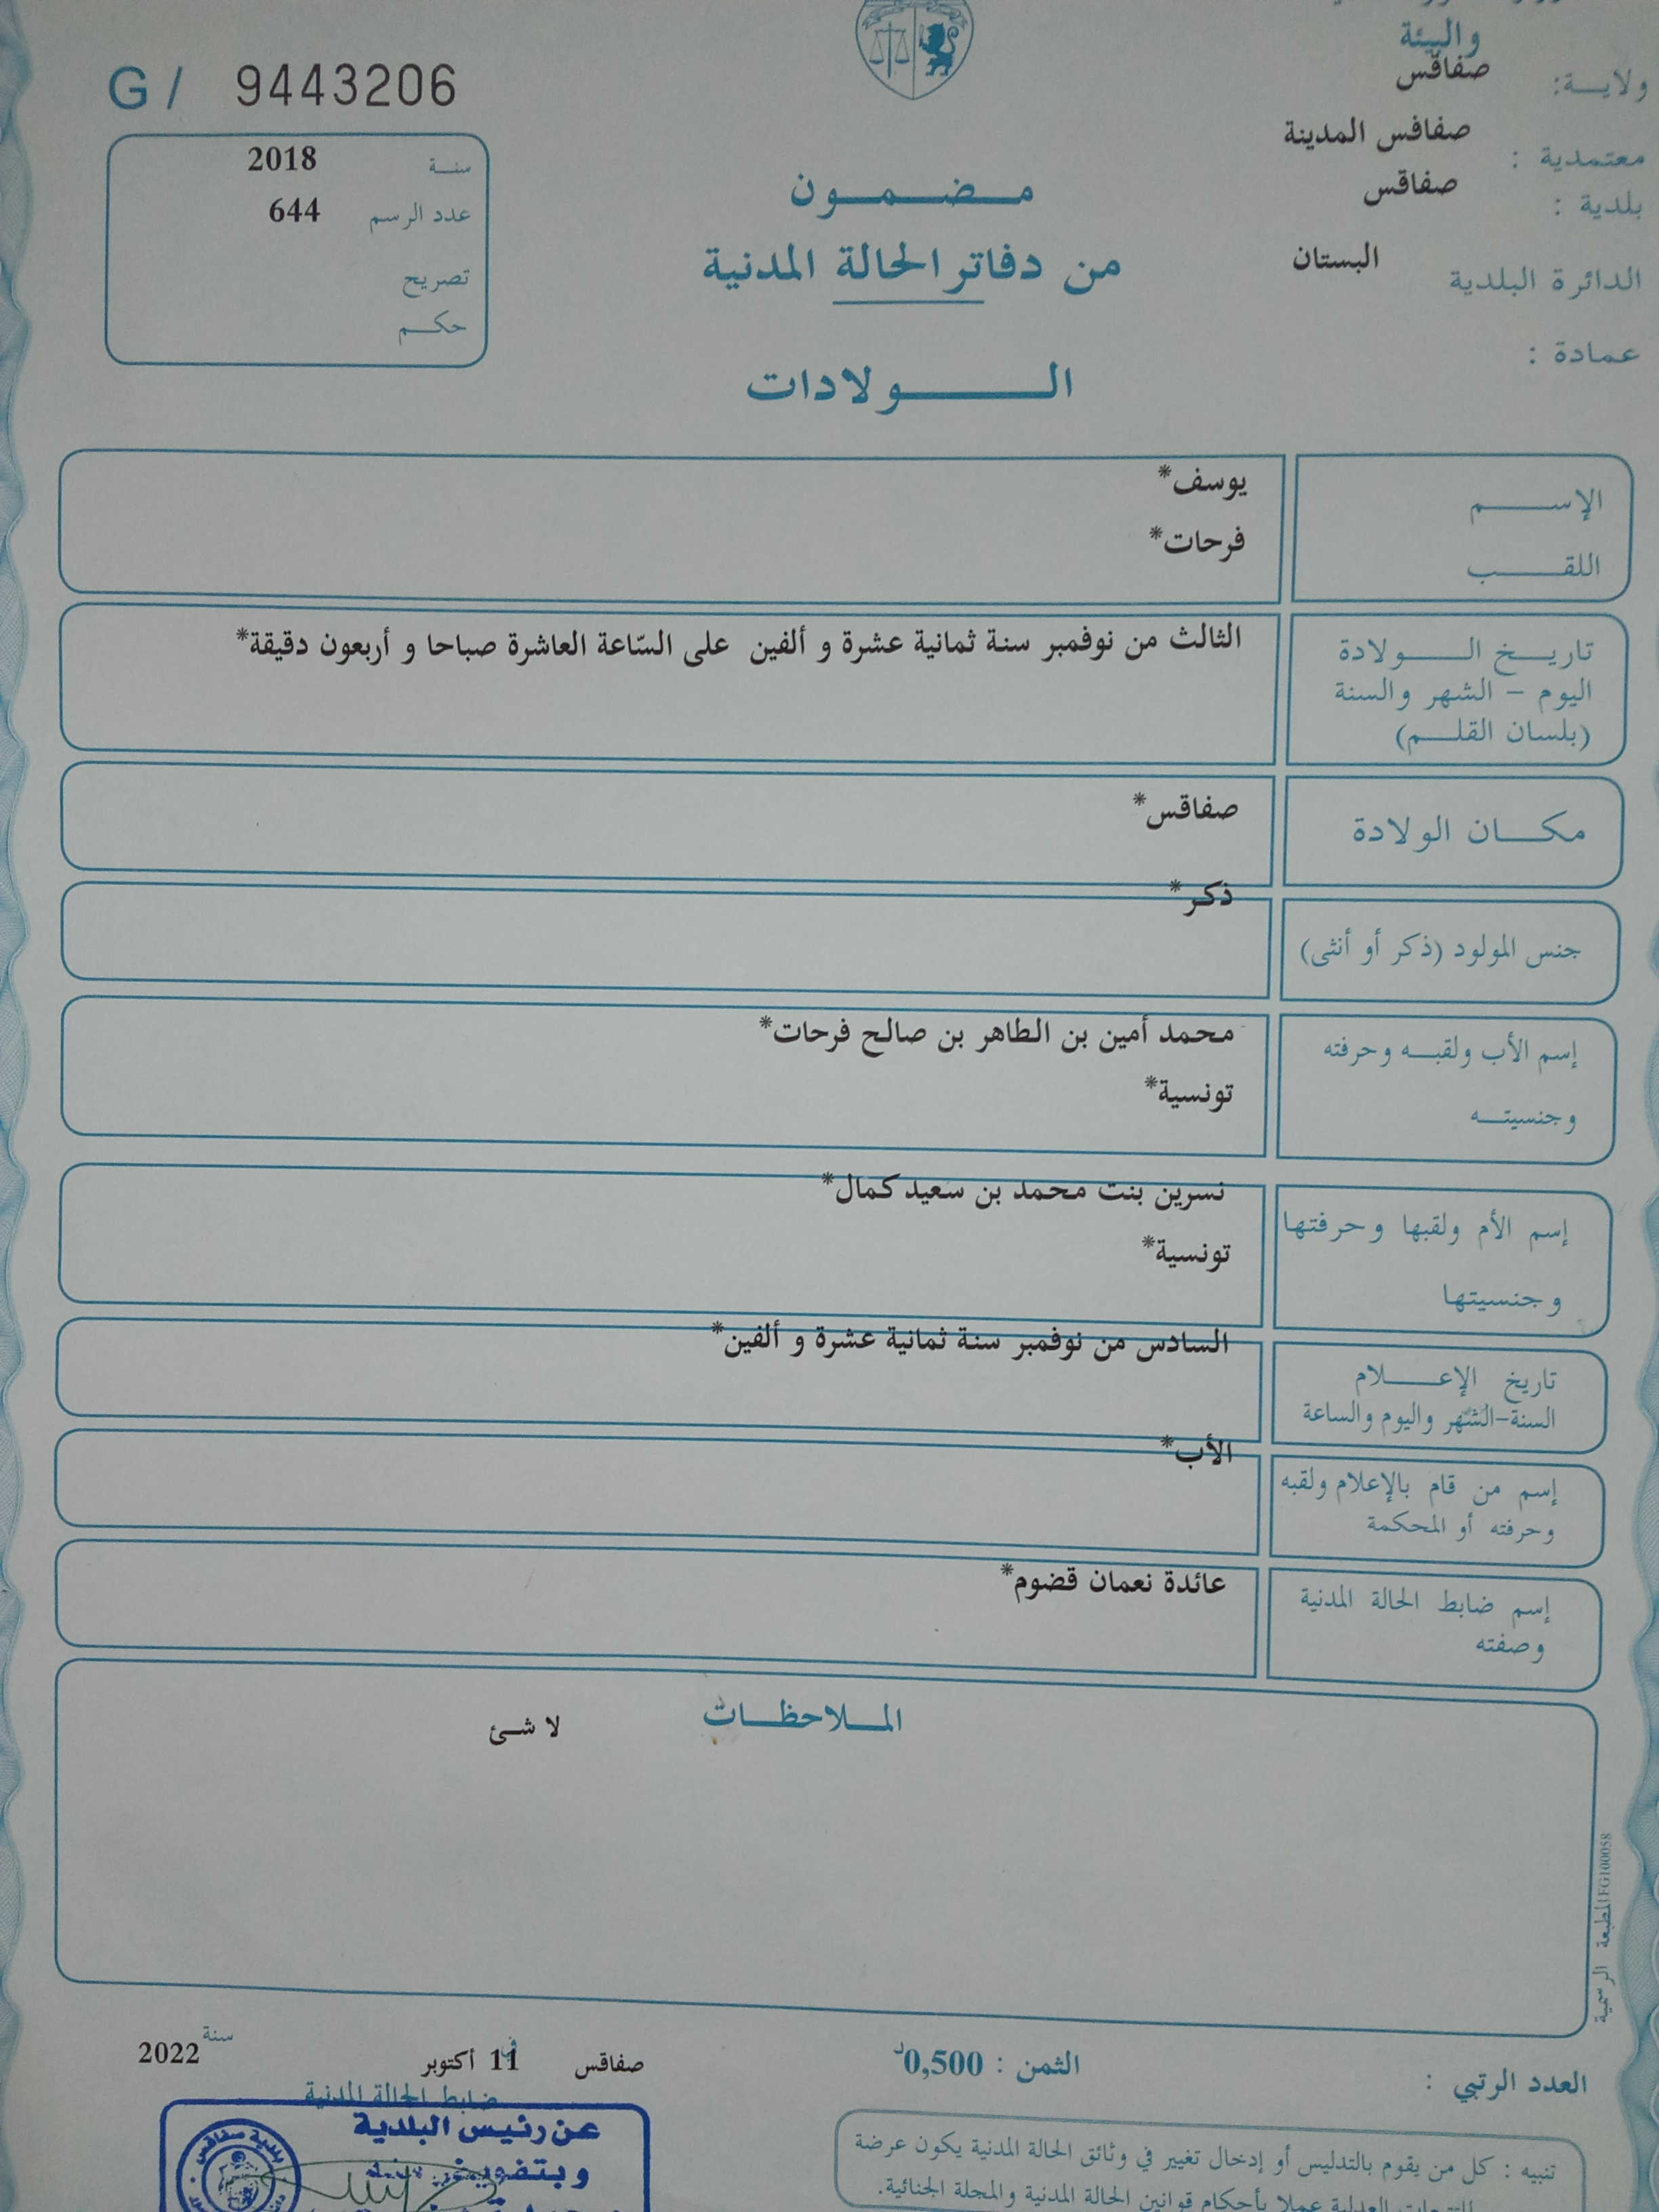 والبيئة
ولاية: صفاقس
معتمدية : صفاقس المدينة
بلدية : صفاقس
الدائرة البلدية البستان
عمادة :
G / 9443206
سنة 2018
عدد الرسم 644
تصريح
حكم
مضمون
من دفاتر الحالة المدنية
الولادات
الإسم يوسف*
اللقب فرحات*
تاريخ الولادة الثالث من نوفمبر سنة ثمانية عشرة و ألفين على السّاعة العاشرة صباحا و أربعون دقيقة*
اليوم - الشهر والسنة
(بلسان القلم)
مكان الولادة صفاقس*
جنس المولود (ذكر أو أنثى) ذكر*
إسم الأب ولقبه وحرفته محمد أمين بن الطاهر بن صالح فرحات*
وجنسيته تونسية*
إسم الأم ولقبها وحرفتها نسرين بنت محمد بن سعيد كمال*
وجنسيتها تونسية*
تاريخ الإعلام السادس من نوفمبر سنة ثمانية عشرة و ألفين*
السنة-الشهر واليوم والساعة
إسم من قام بالإعلام ولقبه الأب*
وحرفته أو المحكمة
إسم ضابط الحالة المدنية عائدة نعمان قضوم*
وصفته
الملاحظات
لا شئ
المطبعة الرسمية FG100058
العدد الرتبي :
الثمن : 0,500د
صفاقس في 11 أكتوبر سنة 2022
ضابط الحالة المدنية
عن رئيس البلدية
وبتفويض منه
بلدية صفاقس
تنبيه : كل من يقوم بالتدليس أو إدخال تغيير في وثائق الحالة المدنية يكون عرضة
للتتبعات العدلية عملا بأحكام قوانين الحالة المدنية والمجلة الجنائية.